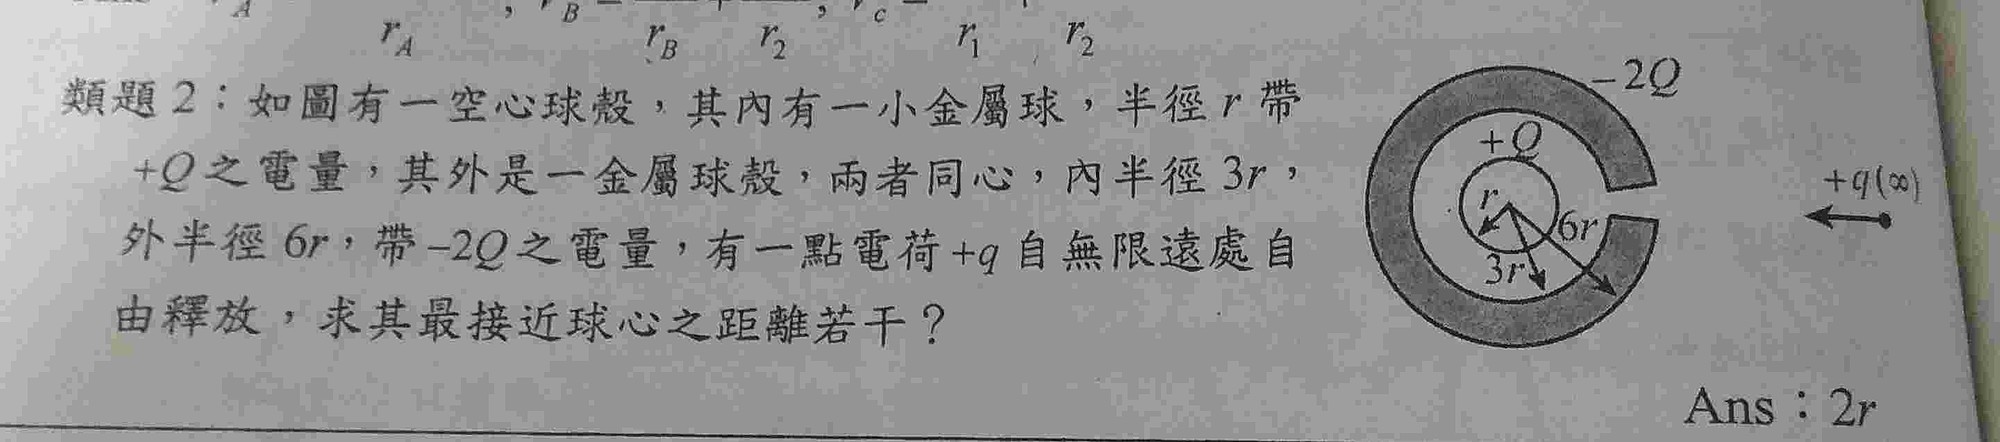 r_A r_B r_2 r_1 r_2
類題 2：如圖有一空心球殼，其內有一小金屬球，半徑 r 帶
+Q之電量，其外是一金屬球殼，兩者同心，內半徑 3r，
外半徑 6r，帶 –2Q之電量，有一點電荷+q 自無限遠處自
由釋放，求其最接近球心之距離若干？
–2Q
+Q
r
6r
3r
+q(∞)
Ans：2r